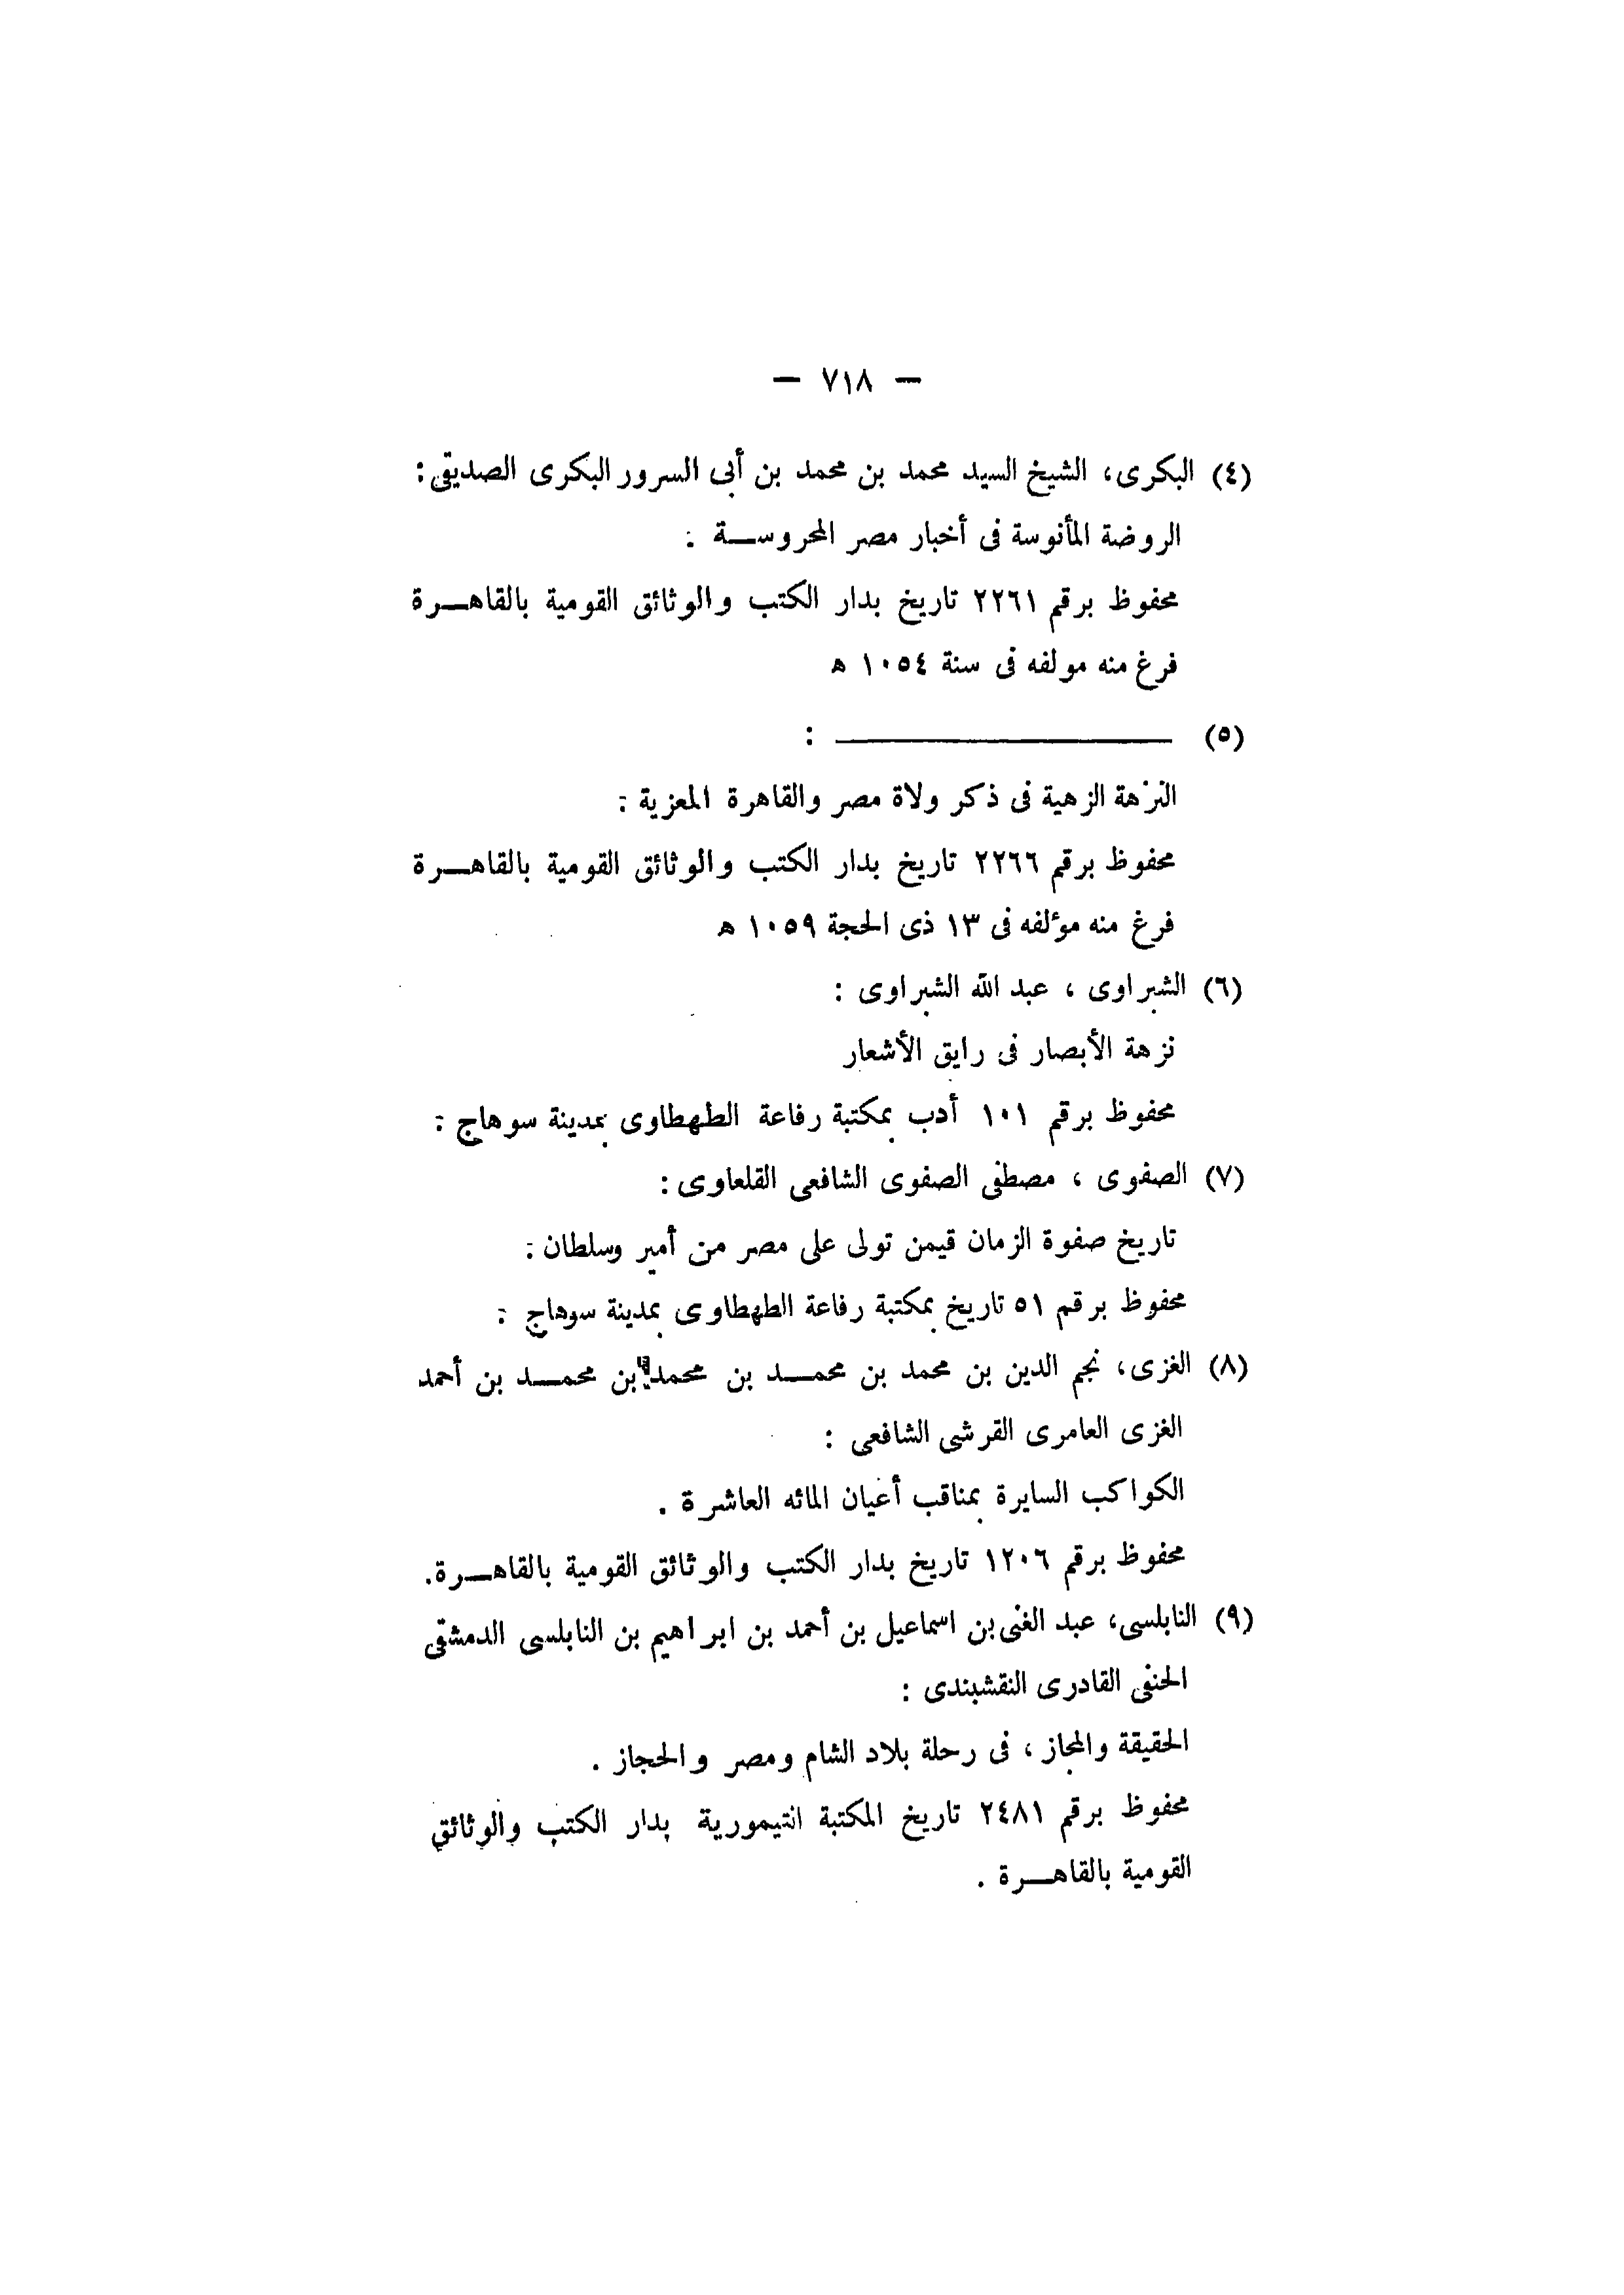 — ٧١٨ —
(٤) البكرى، الشيخ السيد محمد بن محمد بن أبى السرور البكرى الصديقى :
الروضة المأنوسة فى أخبار مصر المحروســة :
محفوظ برقم ٢٢٦١ تاريخ بدار الكتب والوثائق القومية بالقاهــرة
فرغ منه مولفه فى سنة ١٠٥٤ ه
(٥) ــــــــــــــــــــ :
النزهة الزهية فى ذكر ولاة مصر والقاهرة المعزية :
محفوظ برقم ٢٢٦٦ تاريخ بدار الكتب والوثائق القومية بالقاهــرة
فرغ منه مؤلفه فى ١٣ ذى الحجة ١٠٥٩ ه
(٦) الشبراوى ، عبد الله الشبراوى :
نزهة الأبصار فى رايق الأشعار
محفوظ برقم ١٠١ أدب بمكتبة رفاعة الطهطاوى بمدينة سوهاج :
(٧) الصفوى ، مصطفى الصفوى الشافعى القلعاوى :
تاريخ صفوة الزمان قيمن تولى على مصر من أمير وسلطان :
محفوظ برقم ٥١ تاريخ بمكتبة رفاعة الطهطاوى بمدينة سوهاج :
(٨) الغزى، نجم الدين بن محمد بن محمــد بن محمد بن محمــد بن أحمد
الغزى العامرى القرشى الشافعى :
الكواكب السايرة بمناقب أعيان المائه العاشرة .
محفوظ برقم ١٢٠٦ تاريخ بدار الكتب والوثائق القومية بالقاهــرة.
(٩) النابلسى، عبد الغنى بن اسماعيل بن أحمد بن ابراهيم بن النابلسى الدمشقى
الحنفى القادرى النقشبندى :
الحقيقة والمجاز ، فى رحلة بلاد الشام ومصر والحجاز .
محفوظ برقم ٢٤٨١ تاريخ المكتبة انتيمورية بدار الكتب والوثائق
القومية بالقاهــرة .